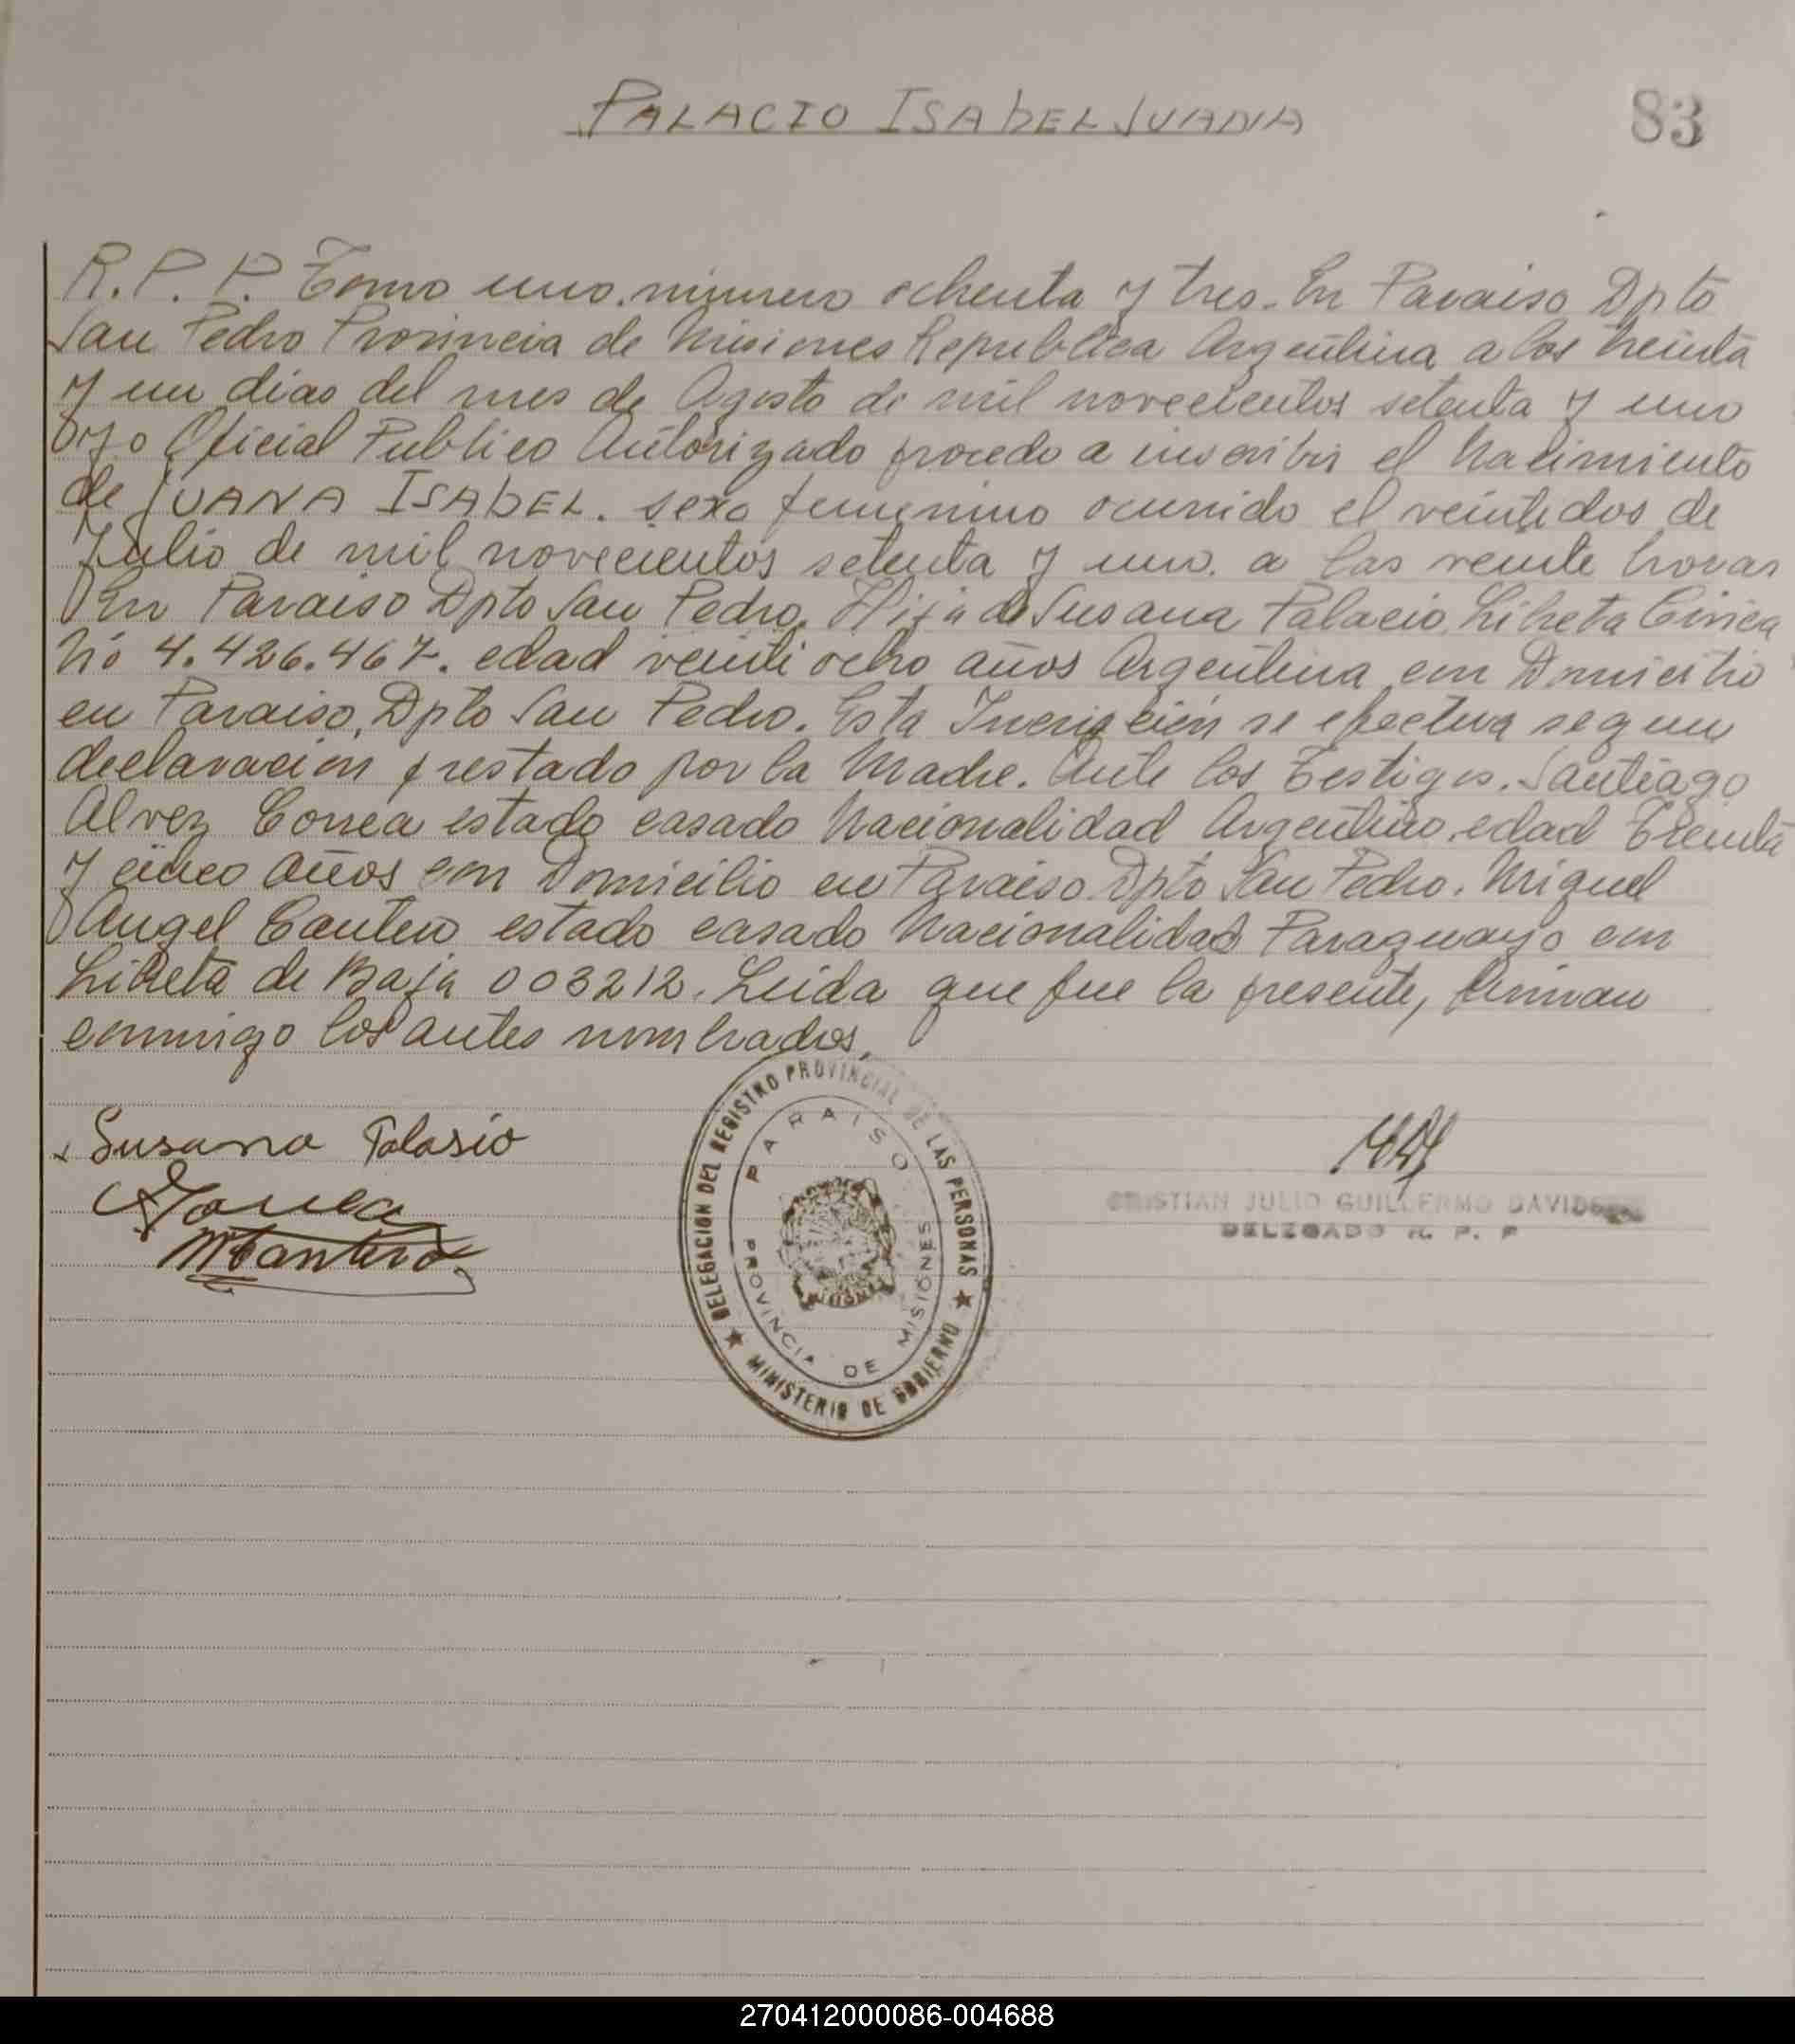 PALACIO ISAbEL JUANA
83
R.P.P. Tomo uno. número ochenta y tres. En Paraiso Dpto
San Pedro Provincia de Misiones Republica Argentina a los treinta
y un dias del mes de Agosto de mil novecientos setenta y uno
Yo Oficial Publico Autorizado procedo a inscribir el Nacimiento
de JUANA ISAbEL. sexo femenino ocurrido el veintidos de
Julio de mil novecientos setenta y uno. a las veinte horas
En Paraiso Dpto San Pedro. Hija de Susana Palacio. Libreta Civica
Nº 4.426.467. edad veinti ocho años Argentina con Domicilio
en Paraiso, Dpto San Pedro. Esta Inscripcion se efectua segun
declaracion prestado por la Madre. Ante los Testigos. Santiago
Alvez Correa estado casado Nacionalidad Argentino. edad Treinta
y cinco años con Domicilio en Paraiso. Dpto San Pedro. Miguel
Angel Cantero estado casado Nacionalidad Paraguayo con
Libreta de Baja 003212. Leida que fue la presente, firman
conmigo los antes nombrados.
Susana Palasio
MCantero
DELEGACION DEL REGISTRO PROVINCIAL DE LAS PERSONAS
PARAISO
PROVINCIA DE MISIONES
MINISTERIO DE GOBIERNO
CRISTIAN JULIO GUILLERMO
DELEGADO R. P. P
270412000086-004688